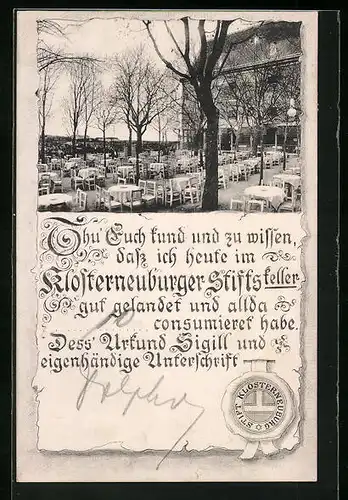 Thu' Euch kund und zu wissen,
daß ich heute im
Klosterneuburger Stiftskeller
gut gelandet und allda
10 consumieret habe.
Dess' Urkund Sigill und
eigenhändige Unterschrift
STIFT KLOSTERNEUBURG